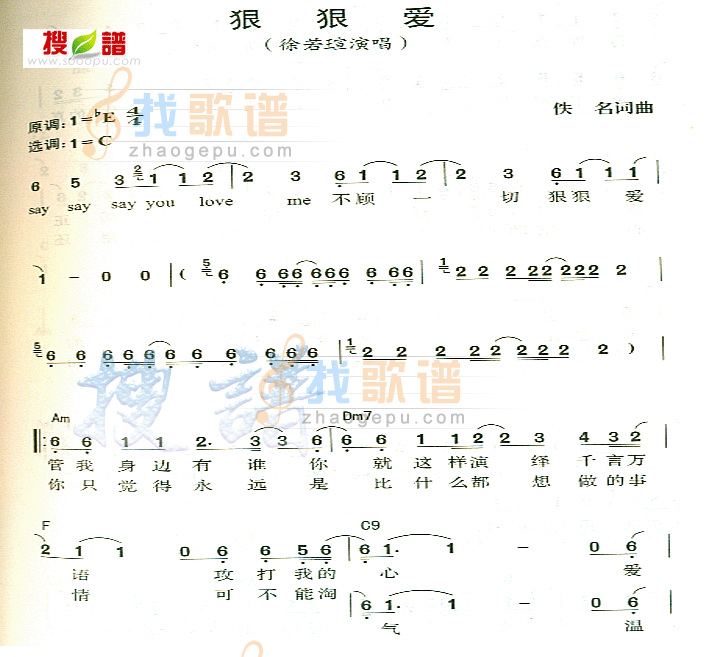 狠 狠 爱
搜 谱
www.sooopu.com
(徐若瑄演唱)
找歌谱
zhaogepu.com
原调:1=♭E 4/4
佚 名词曲
选调:1=C
6 5 3 2 1 1 2 | 2 3 6 1 1 2 | 2 3 6 1 1 |
say say say you love me 不顾 一 切 狠狠 爱
1 - 0 0 | ( 5 6 6 66 6 666 6 66 | 1 2 2 2 22 2 222 2 |
5 6 6 6 6 6 6 6 6 6 6 6 | 1 2 2 2 2 2 2 2 2 2 )
搜 谱
找歌谱
zhaogepu.com
Am Dm7
6 6 1 1 2· 3 3 6 | 6 6 1 1 2 2 3 4 3 2 |
管我 身边有 谁 你 就 这样演 绎 千言万
你只 觉得永 远 是 比 什么都 想 做的事
F C9
2 1 1 0 6 6 5 6 | 6 1· 1 - 0 6 |
语 攻 打 我的 心 爱
情 可 不 能淘
6 1· 1 - 0 6 |
气 温